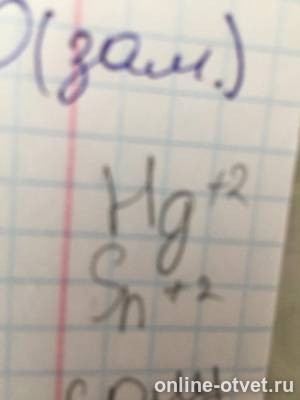 (зам.)
Hg⁺²
Sn⁺²
online-otvet.ru